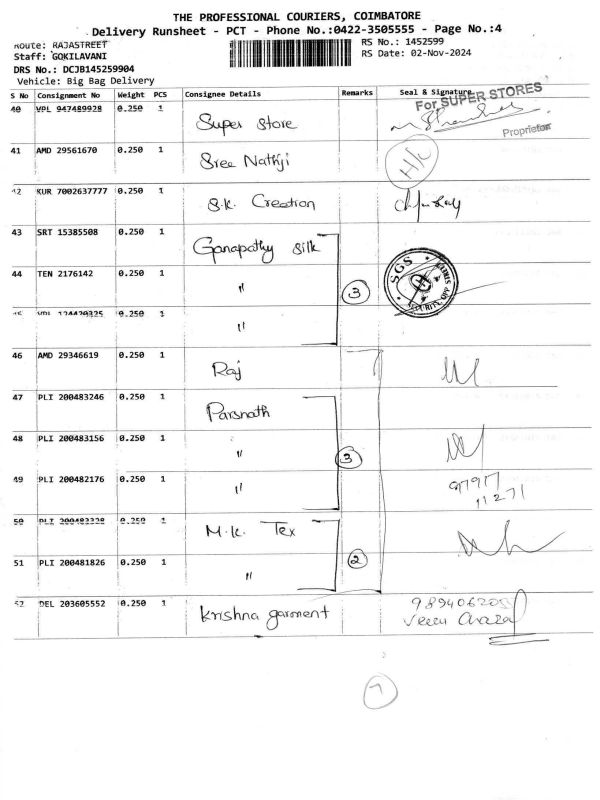 THE PROFESSIONAL COURIERS, COIMBATORE
Delivery Runsheet - PCT - Phone No.:0422-3505555 - Page No.:4
Route: RAJASTREET RS No.: 1452599
Staff: GOKILAVANI RS Date: 02-Nov-2024
DRS No.: DCJB145259904
Vehicle: Big Bag Delivery
S No Consignment No Weight PCS Consignee Details Remarks Seal & Signature
For SUPER STORES
40 VPL 947489928 0.250 1 Super Store
Proprietor
41 AMD 29561670 0.250 1 Sree Nathji H/C
42 KUR 7002637777 0.250 1 S.K. Creation
43 SRT 15385508 0.250 1 Ganapathy Silk
44 TEN 2176142 0.250 1 " 3 SGS
45 VPL 124420325 0.250 1 "
46 AMD 29346619 0.250 1 Raj
47 PLI 200483246 0.250 1 Parsnath
48 PLI 200483156 0.250 1 " 3
49 PLI 200482176 0.250 1 "
11271
50 PLI 200483328 0.250 1 M.K. Tex
51 PLI 200481826 0.250 1 " 2
52 DEL 203605552 0.250 1 Krishna garment
7